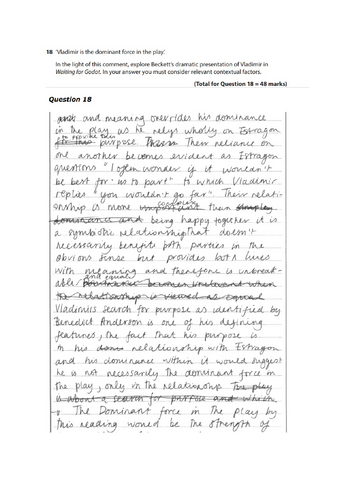 18 'Vladimir is the dominant force in the play'.
In the light of this comment, explore Beckett's dramatic presentation of Vladimir in
Waiting for Godot. In your answer you must consider relevant contextual factors.
(Total for Question 18 = 48 marks)
Question 18
and meaning overrides his dominance
in the play as he relys wholly on Estragon
to provide this
purpose. Their reliance on
one another becomes evident as Estragon
questions "I often wonder if it wouldn't
be best for us to part" to which Vladimir
replies "you wouldn't go far". Their relati-
onship is more than simply
dominance and being happy together it is
a symbolic relationship that doesn't
necessarily benefit both parties in the
obvious sense but provides both lives
with meaning and therefore is unbreak-
able and equal
the relationship is viewed as equal
Vladimirs search for purpose as identified by
Benedict Anderson is one of his defining
features, the fact that his purpose is
in his relationship with Estragon
and his dominance within it would suggest
he is not necessarily the dominant force in
the play, only in the relationship. The play
is about a search for purpose and
The Dominant force in the play by
this reading would be the strength of